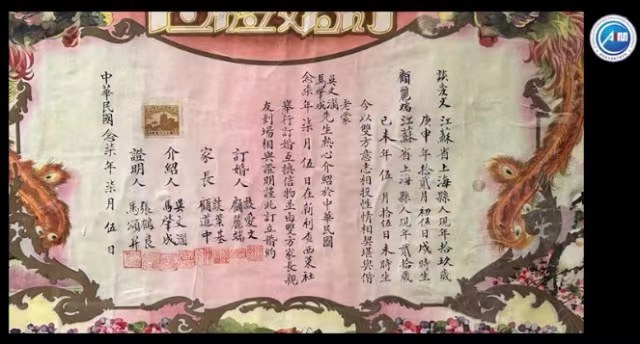 談愛文 江蘇省上海縣人現年拾玖歲
庚申年拾貳月初伍日戌時生
顧麗瑞 江蘇省上海縣人現年貳拾歲
己未年伍月拾伍日未時生
今以雙方意志相投性情相契堪與偕
老蒙
吳文瀾
馬肇成先生熱心介紹於中華民國
念柒年柒月伍日在新利查西菜社
舉行訂婚互換信物並由雙方家長親
友到場相與證明謹此訂立婚約
訂婚人 談愛文
顧麗瑞
家長 談葉基
顧道中
介紹人 吳文瀾
馬肇成
證明人 張鶴良
馬頌昇
中華民國念柒年柒月伍日